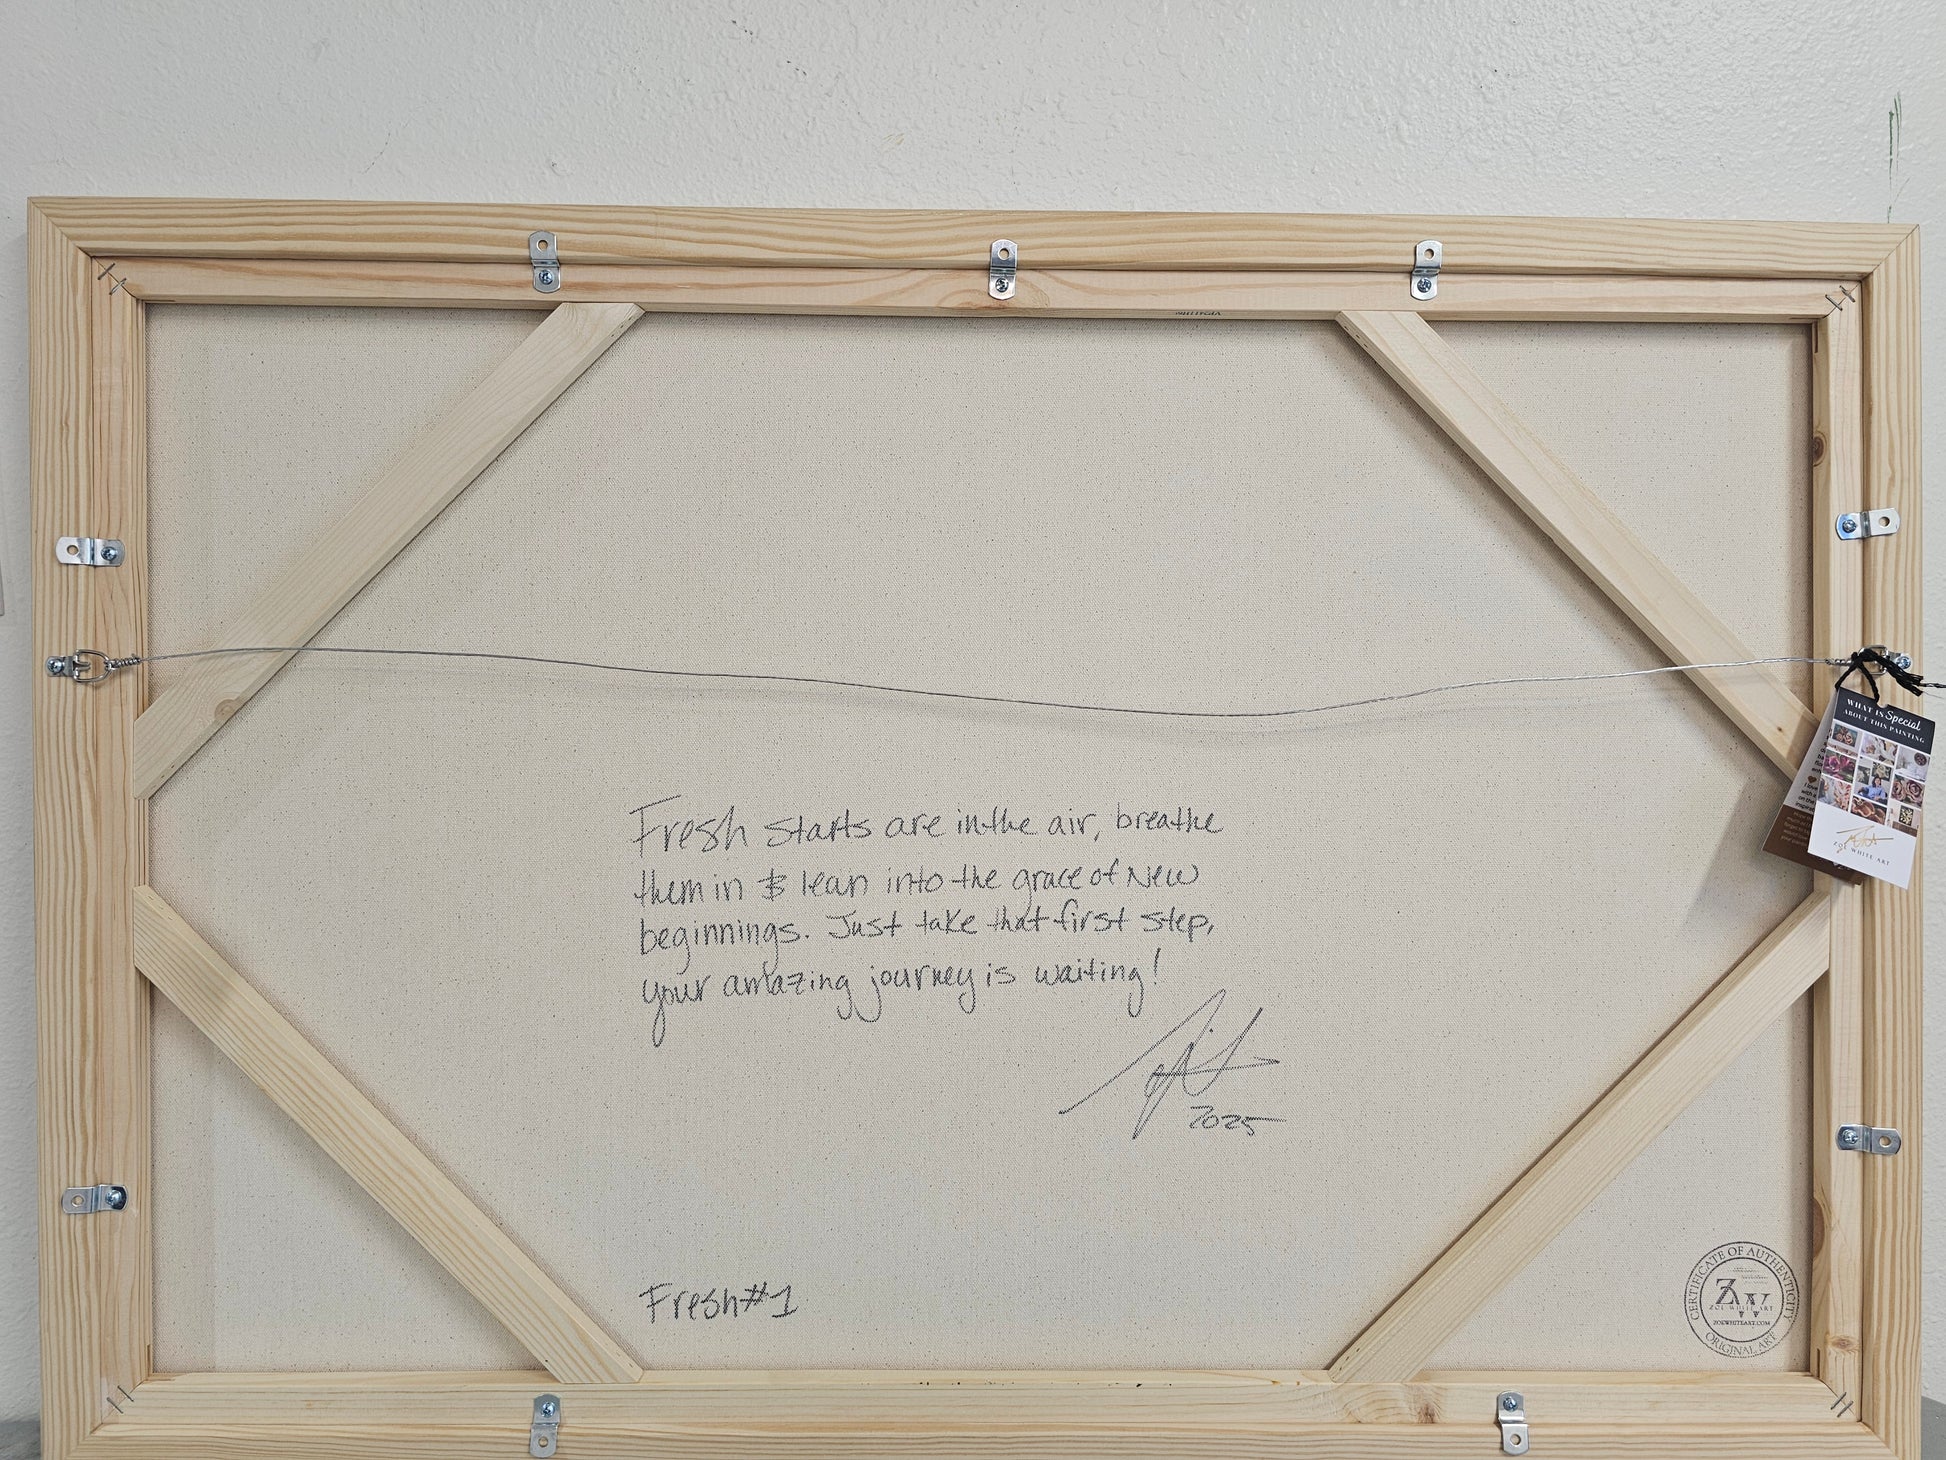 WHAT IS Special
ABOUT THIS PAINTING
ZOE WHITE ART
Fresh starts are in the air, breathe
them in & lean into the grace of New
beginnings. Just take that first step,
your amazing journey is waiting!
2025
Fresh #1
CERTIFICATE OF AUTHENTICITY
ZW
ZOE WHITE ART
ZOEWHITEART.COM
ORIGINAL ART